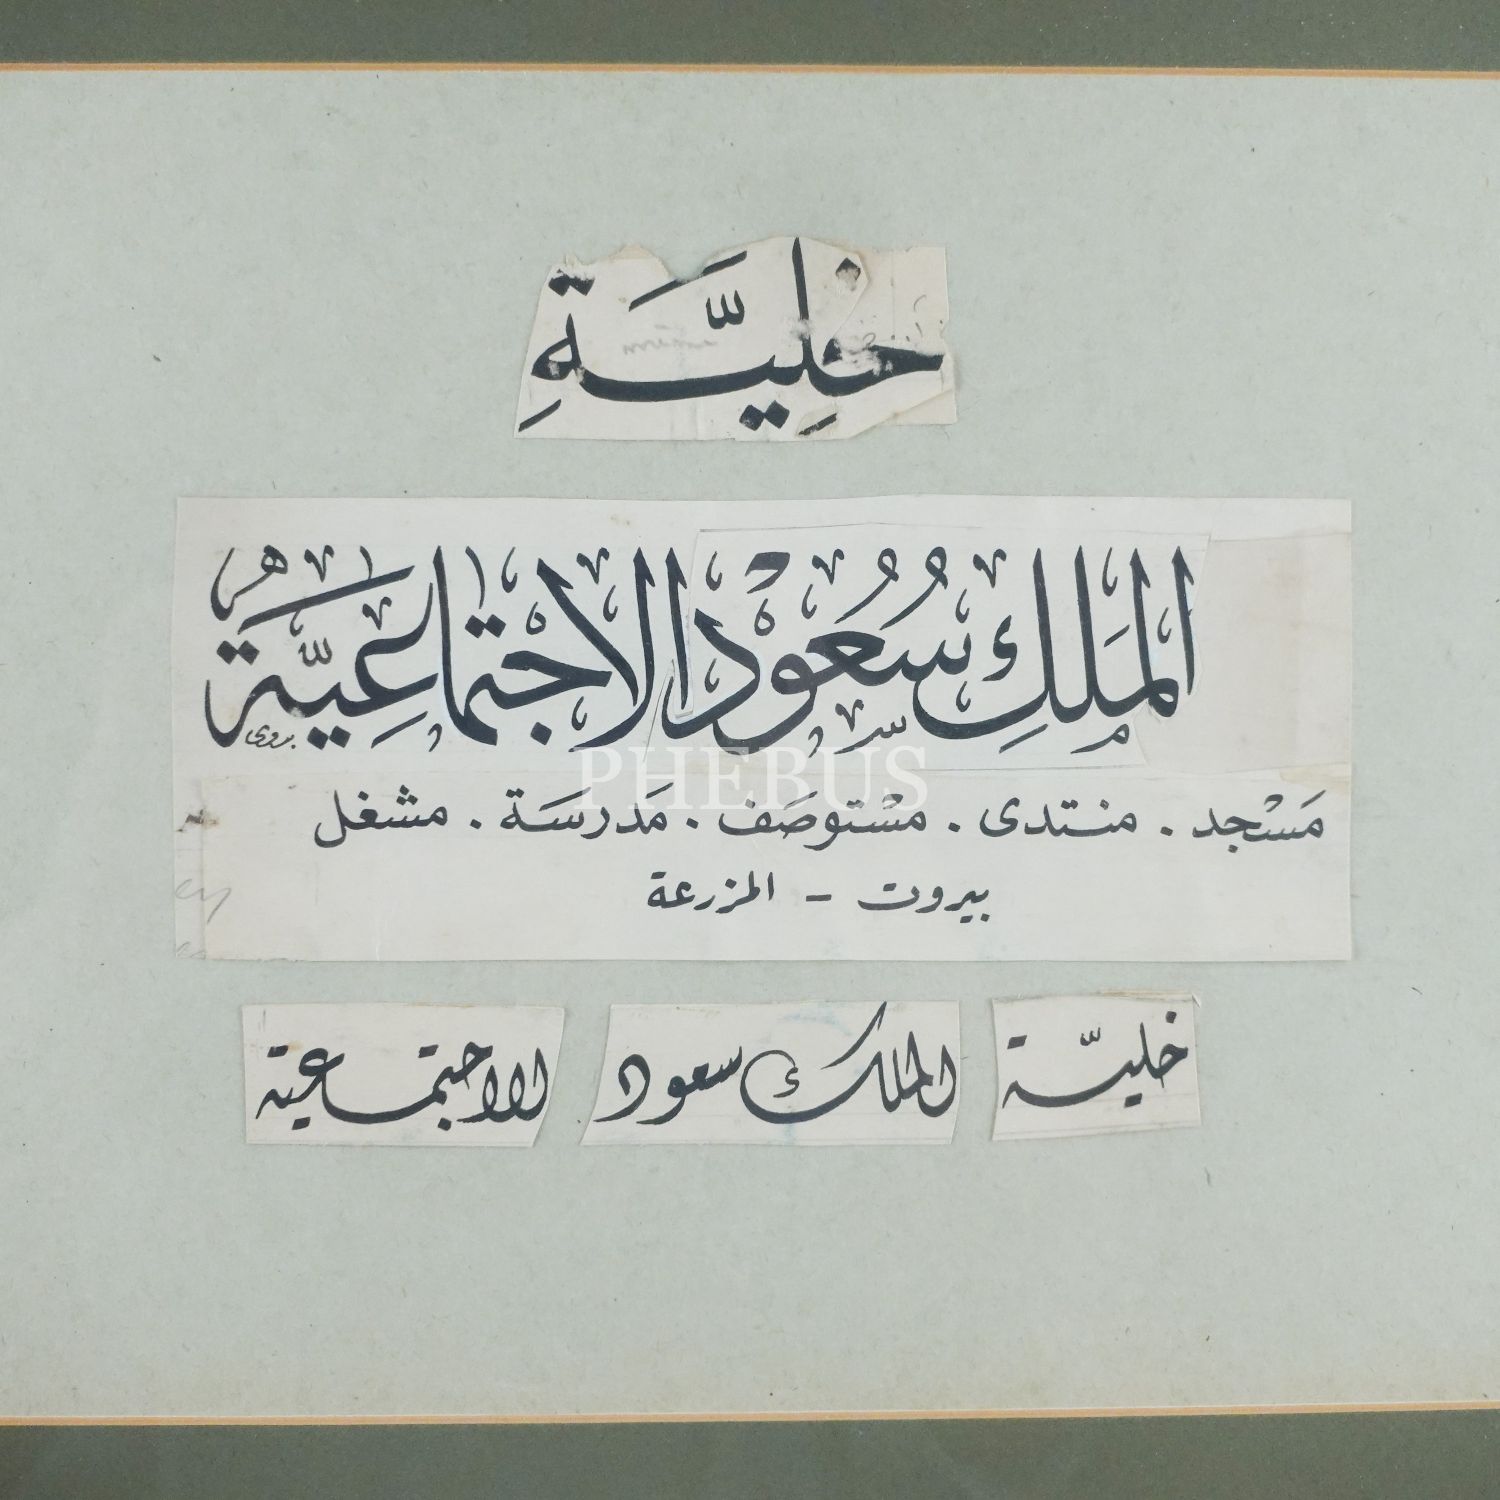 خَلِيَّةِ
المَلَكِ سُعُوْد الاجْتِمَاعِيَّة
بدوي
PHEBUS
مَسْجد . منتدى . مسْتوصَف . مَدرسَة . مشغل
بيروت - المزرعة
خليّة الملك سعود الاجتماعية